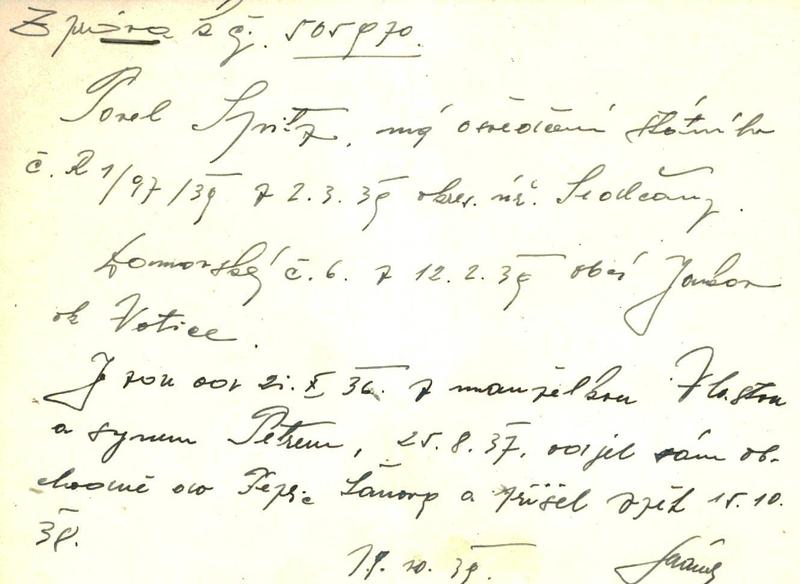 Zpráva k čj. 505970.
Pavel Spitz, má osvědčení státního
č. R 1/97/39 z 2.3.39 okres. úř. Sedlčany.
Domovský č. 6. z 12.2.39 obcí Jankov
ok Votice.
Je zde od 21. X 36. z manželkou Vlastou
a synem Petrem, 25.8.37. odjel sám ob-
chodně do Teplic Šanova a přišel zpět 15.10.
38.
19.10.39.